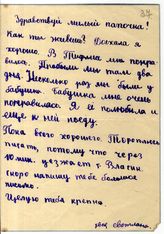 37
Здравствуй милый папочка!
Как ты живёшь? Доехала я
хорошо. В Тифлисе мне понра-
вилось. Пробыли мы там два
дня. Несколько раз мы были у
бабушки. Бабушка мне очень
понравилась. Я её полюбила и
еще к ней поеду.
Пока всего хорошего. Тороплюсь
писать, потому что через
10 мин. уезжает т. Власик.
Скоро напишу тебе большое
письмо.
Целую тебя крепко.
Светлана.